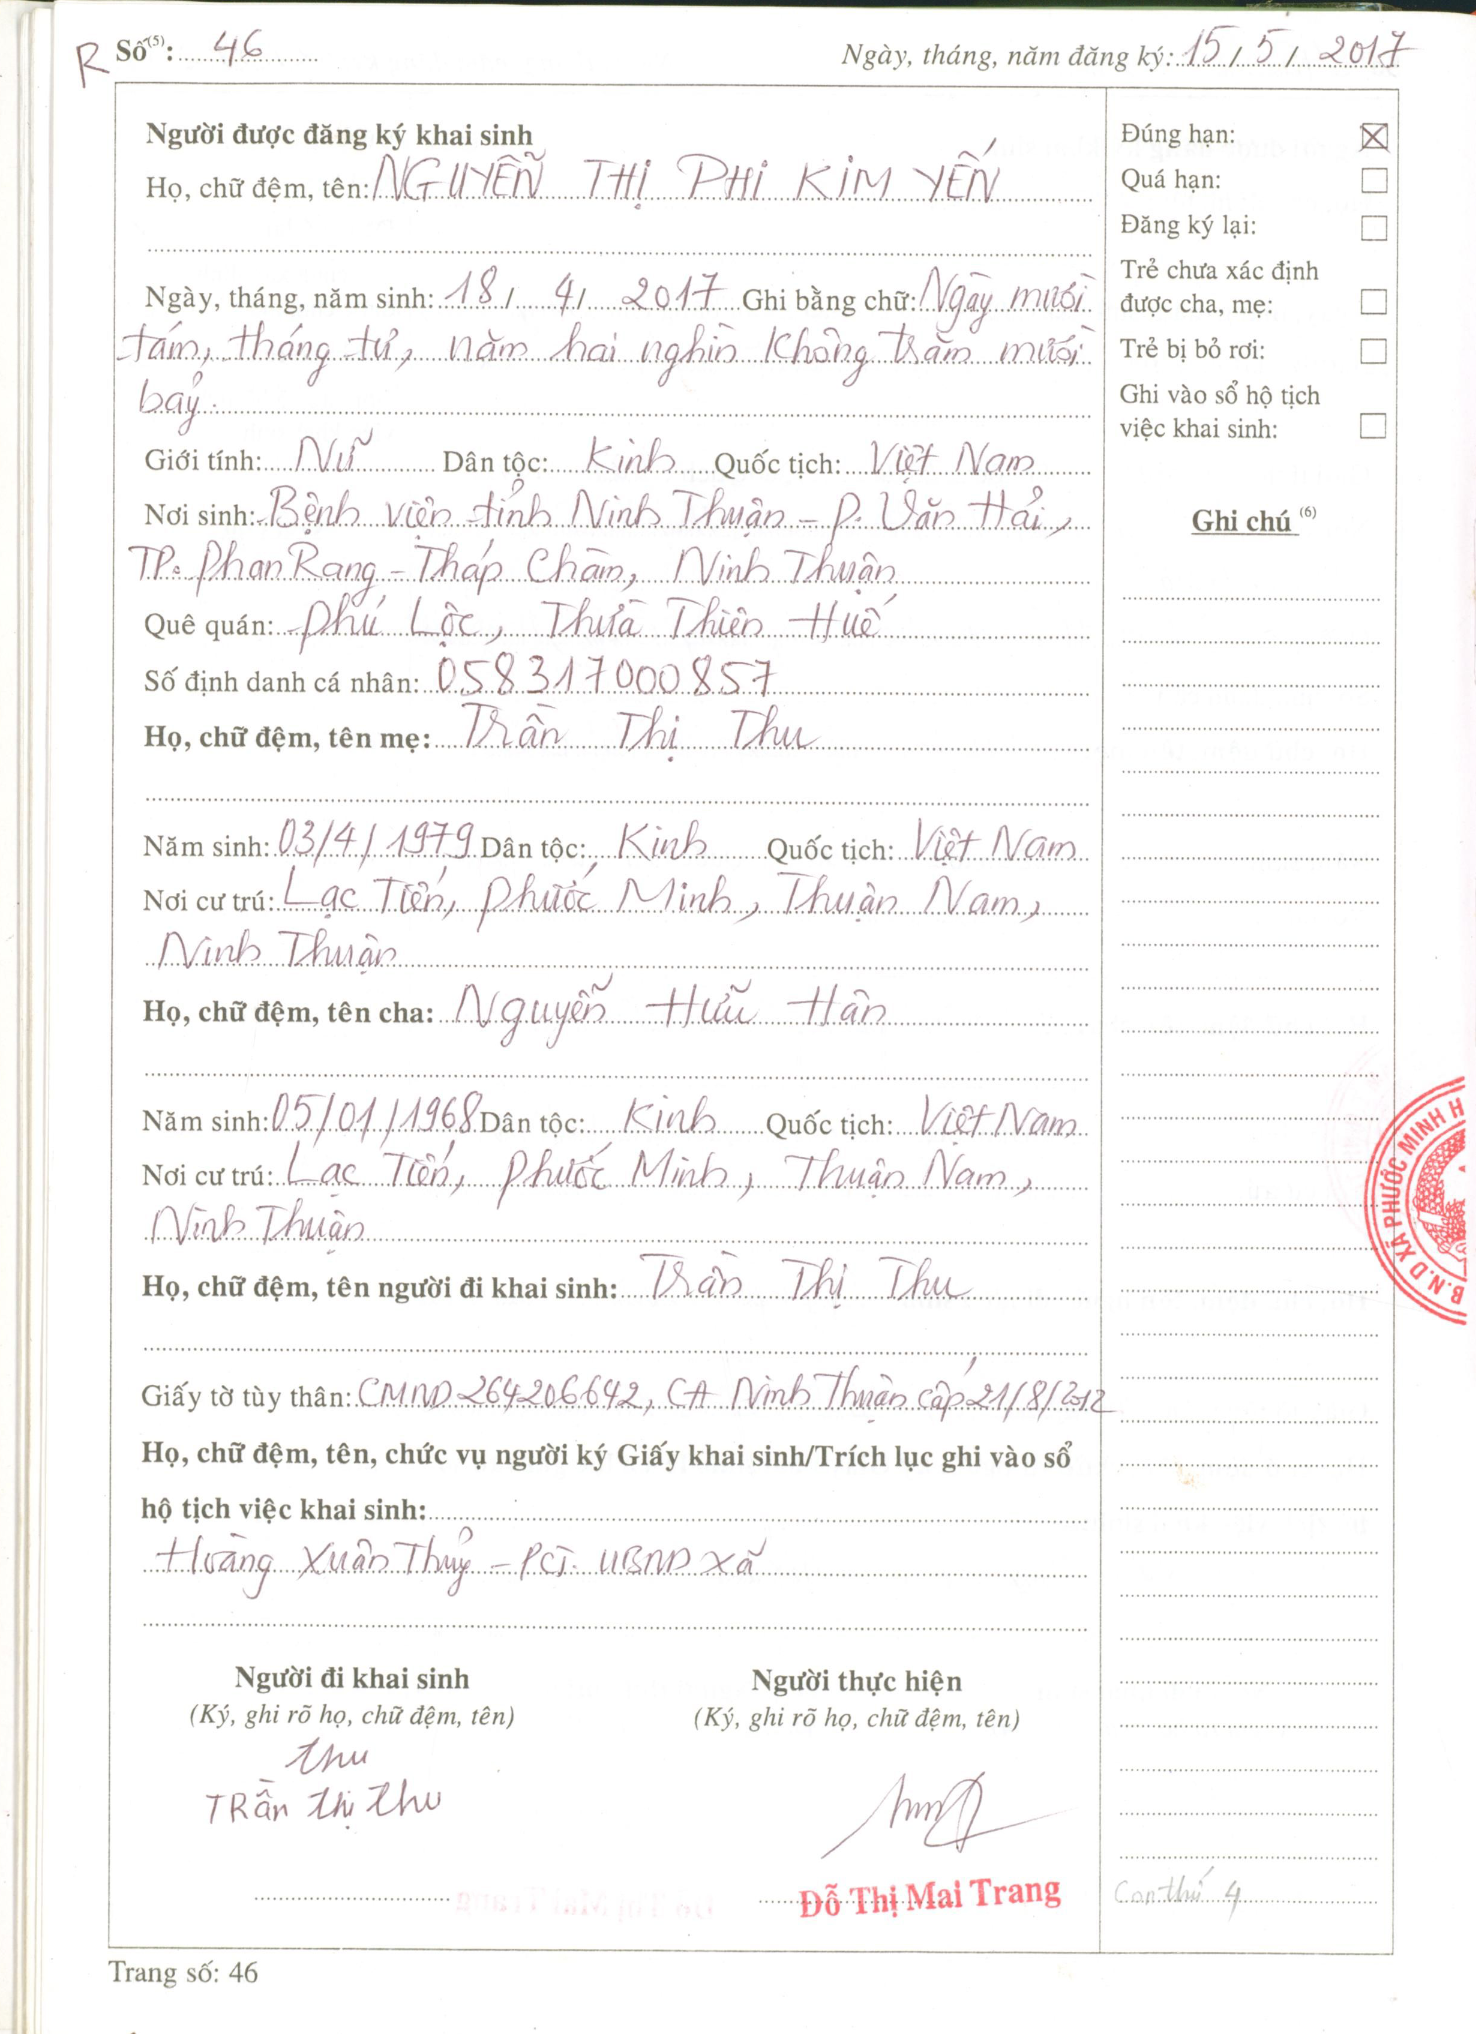 R Số(5): 46
Ngày, tháng, năm đăng ký: 15/5/2017
Người được đăng ký khai sinh
Họ, chữ đệm, tên: NGUYỄN THỊ PHI KIM YẾN
Ngày, tháng, năm sinh: 18/4/2017 Ghi bằng chữ: Ngày mười
tám, tháng tư, năm hai nghìn không trăm mười
bảy.
Giới tính: Nữ Dân tộc: Kinh Quốc tịch: Việt Nam
Nơi sinh: Bệnh viện tỉnh Ninh Thuận - P. Văn Hải,
TP. Phan Rang - Tháp Chàm, Ninh Thuận
Quê quán: Phú Lộc, Thừa Thiên Huế
Số định danh cá nhân: 058317000857
Họ, chữ đệm, tên mẹ: Trần Thị Thu
Năm sinh: 03/4/1979 Dân tộc: Kinh Quốc tịch: Việt Nam
Nơi cư trú: Lạc Tiến, Phước Minh, Thuận Nam,
Ninh Thuận
Họ, chữ đệm, tên cha: Nguyễn Hữu Hân
Năm sinh: 05/01/1968 Dân tộc: Kinh Quốc tịch: Việt Nam
Nơi cư trú: Lạc Tiến, Phước Minh, Thuận Nam,
Ninh Thuận
Họ, chữ đệm, tên người đi khai sinh: Trần Thị Thu
Giấy tờ tùy thân: CMND 264206642, CA Ninh Thuận cấp 21/8/2012
Họ, chữ đệm, tên, chức vụ người ký Giấy khai sinh/Trích lục ghi vào sổ
hộ tịch việc khai sinh:
Hoàng Xuân Thủy - PCT. UBND xã
Người đi khai sinh
(Ký, ghi rõ họ, chữ đệm, tên)
thu
TRần thị thu
Người thực hiện
(Ký, ghi rõ họ, chữ đệm, tên)
Đỗ Thị Mai Trang
Đúng hạn: ☒
Quá hạn: ☐
Đăng ký lại: ☐
Trẻ chưa xác định
được cha, mẹ: ☐
Trẻ bị bỏ rơi: ☐
Ghi vào sổ hộ tịch
việc khai sinh: ☐
Ghi chú (6)
B.N.D XÃ PHƯỚC MINH H
Con thứ 4
Trang số: 46